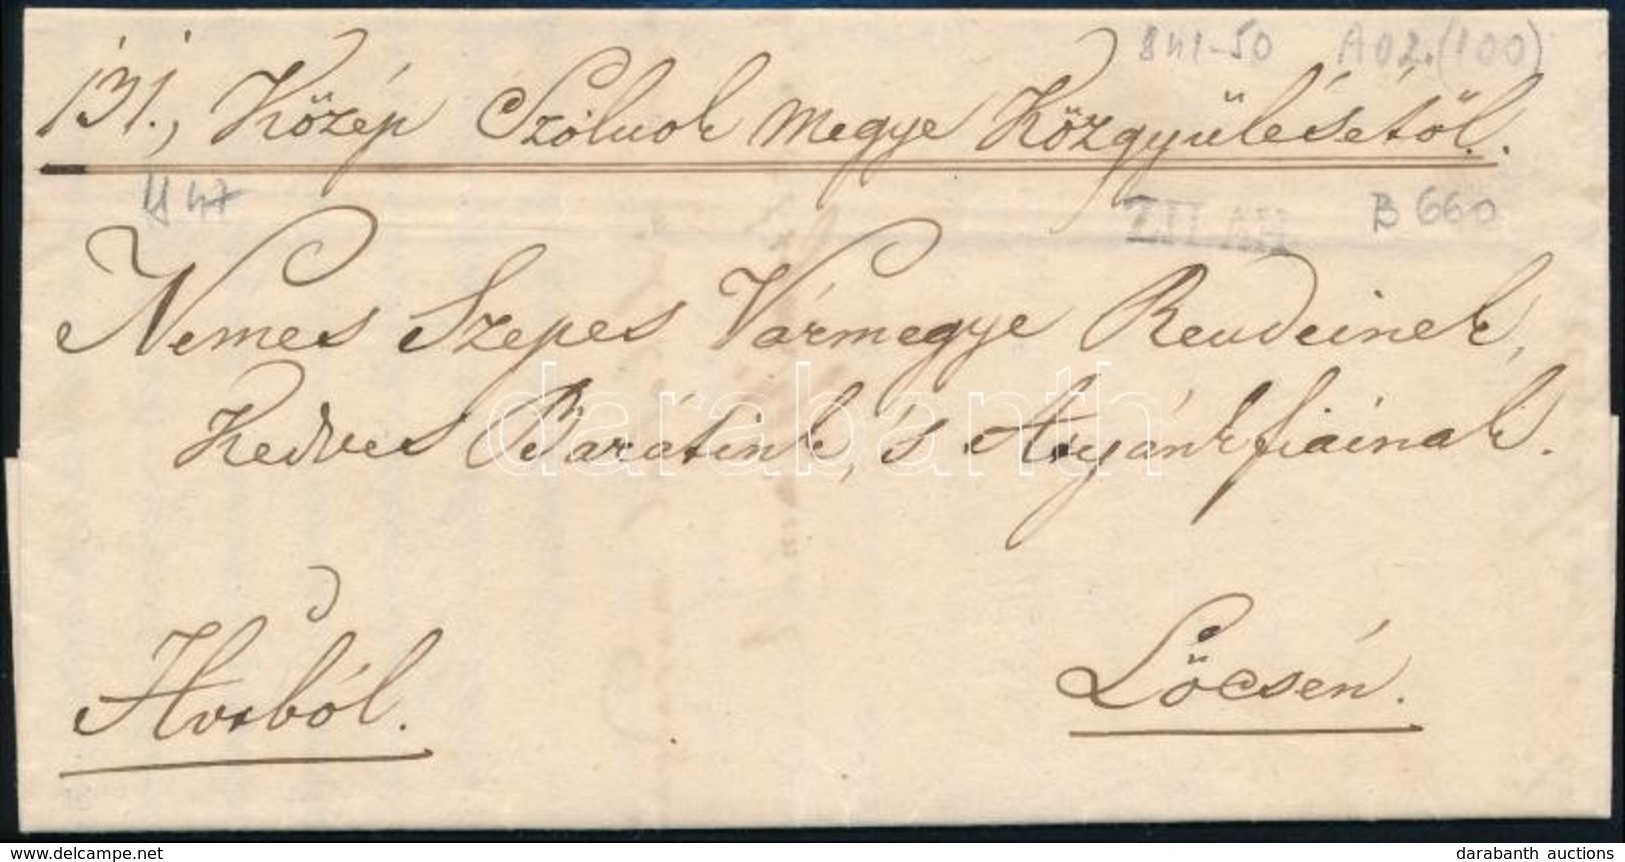 841-50 A02.(100)
131., Közép Szólnok megye Közgyülésétöl.
H 47 ZILAH B 660
Nemes Szepes Vármegye Rendeinek,
Kedves Barátink, 's Atyánkfiainak.
darabanth
Hivból.
Löcsén.
www.delcampe.net
darabanth auctions